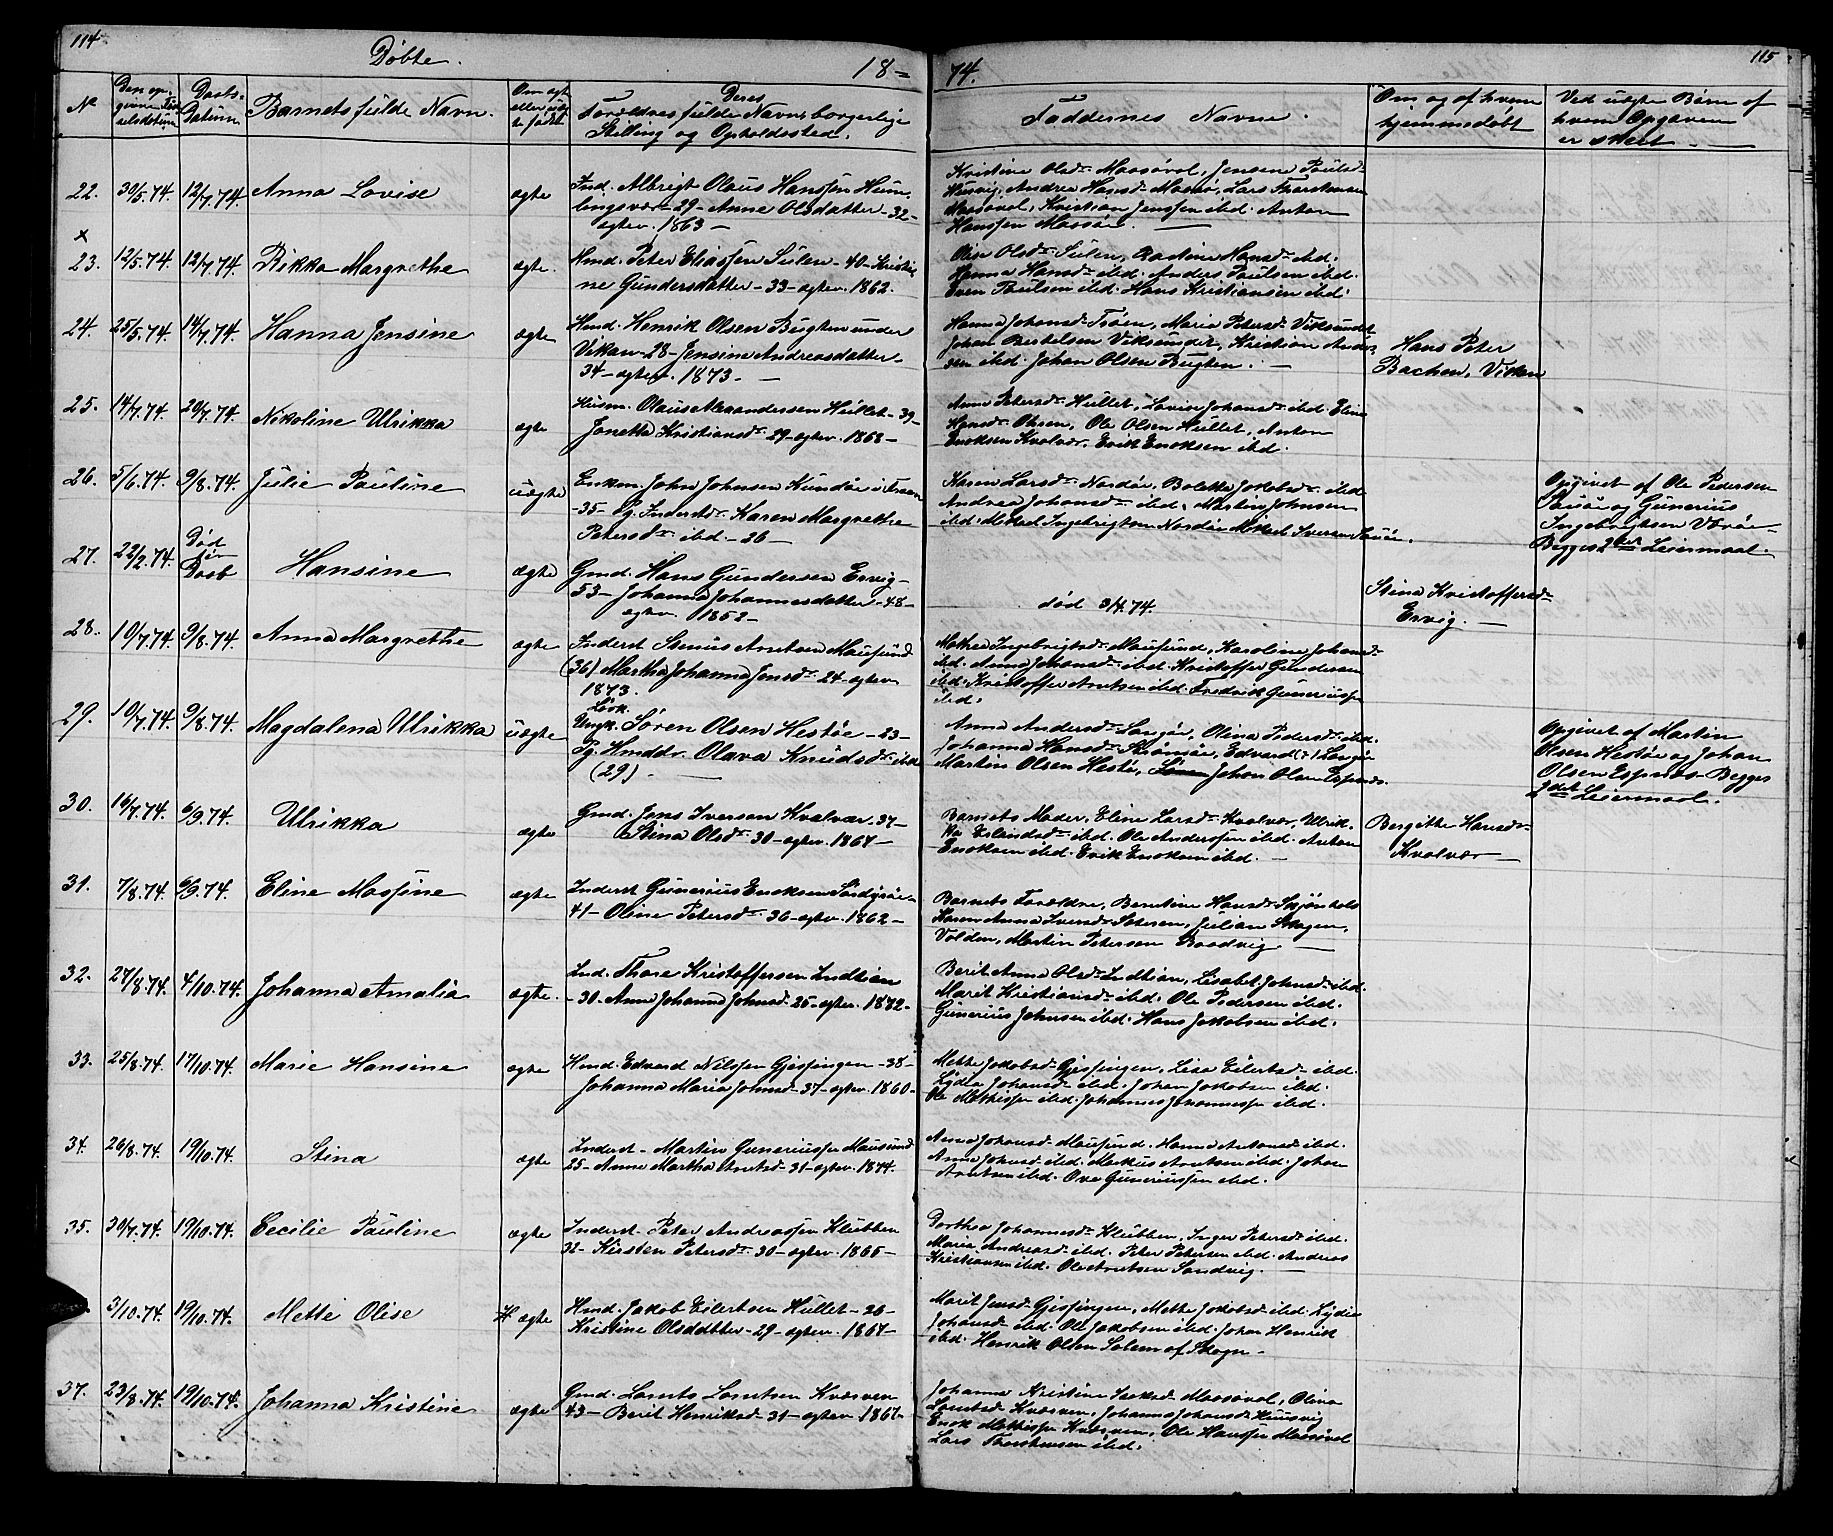 114
Døbte.
18=
74.
115
N⁰
Den op-
givne Fød-
selsdatum
Daabs-
Datum
Barnets fulde Navn.
Om ægte
eller uæg-
te født
Deres
Forældres fulde Navn, borgerlige
Stilling og Opholdssted.
Faddernes Navne.
Om og af hvem
hjemmedøbt
Ved uægte Børn af
hvem Opgaven
er skeet
22. 30/5.74. 12/7.74. Anna Lovise ægte
Ind. Albrigt Olaus Hanssen Hum-
lingsvær - 29 - Anne Olsdatter - 32 -
ægtev. 1863 -
Kristine Olsd. Massøvel, Jensine Paulsd.
Husvig, Andrea Hansd. Massø, Lars Thorstensen
Massøvel, Kristian Jenssen ibd. Anton
Hanssen Massøe.
x
23. 12/5.74. 12/7.74. Rikka Margrethe ægte.
Hmd. Peter Eliassen Sulen - 40 - Kristi-
ne Gundersdatter - 33 - ægtev. 1862.
Olise Olsd. Sulen, Hansd. ibd.
Hanna Hansd. ibd. Anders Paulsen ibd.
Even Paulsen ibd. Hans Kristiansen ibd.
24. 25/5.74. 14/7.74. Hanna Jensine ægte
Hmd. Henrik Olsen Bugten under
Vikan - 28 - Jensine Andreasdatter -
34 - ægtev. 1873. -
Hanna Johansd. Trøen, Maria Petersd. Viksundet
Johan Bertelsen Viksundet, Kristian Ander-
sen ibd. Johan Olsen Bugten. -
Hans Peter
Bachen, Vikan
25. 14/7.74. 20/7.74. Nikoline Ulrikka ægte
Husm. Olaus Alexandersen Hullet - 39 -
Jonetta Kristiansd. 29 - ægtev. 1868 -
Anne Petersd. Hullet, Lovise Johansd. ibd. Eline
Hansd. Ole Olsen Hullet, Anton
Enoksen Kvalvær, Erik Enoksen ibd.
26. 5/6.74. 9/8.74. Julie Pauline uægte
Enkm. John Johnsen Kunøe i Froan
- 35 - Pg. Inderst. Karen Margrethe
Petersd. ibd. - 26 -
Karen Larsd. Nordøe, Boletta Jakobsd. ibd.
Andrea Johansd. ibd. Martin Johnsen
ibd. Mikael Ingebrigtsen Nordøe Mikael Iversen
Opgivet af Ole Pedersen
og Gunerius
Ingebrigtsen Værøe -
Begges 2det Leiermaal.
27. 22/2.74. Død
før
Daab Hansine ægte
Gmd. Hans Gundersen Ervig -
53 - Johanna Johannesdatter - 48 -
ægtev. 1852 -
død 3/4.74.
Stina Kristoffersd.
Ervig. -
28. 10/7.74. 9/8.74. Anna Margrethe ægte
Inderst Stenus Arntsen Mausund
(36) Martha Johanna Jensd. 24 - ægtev.
1873.
Mathea Ingebrigtsd. Mausund, Karoline Johansd.
ibd. Anna Johansd. ibd. Kristoffer Gundersen
ibd. Kristoffer Arntsen ibd. Fredrik Guneriussen
ibd.
29. 10/7.74. 9/8.74. Magdalena Ulrikka uægte
Ungk. Søren Olsen Hestøe - 23 -
Pg. Hmdd. Olava Knudsd. ibd
(29). -
Anna Andersd. Langøe, Olina Pedersd. ibd.
Johanna Hansd. Strømøe, Edvard (?) Langøe
Martin Olsen Hestø, Johan Olsen Espnes.
Opgivet af Martin
Olsen Hestøe og Johan
Olsen Espnes - Begges
2det Leiermaal.
30. 16/7.74. 6/9.74. Ulrikka ægte
Gmd. Jens Iversen Kvalvær. 37 -
Stina Olsd. 30 - ægtev. 1867 -
Barnets Moder, Eline Larsd. Kvalvær, Ulrik-
ka Erlandsd. ibd. Ole Anderssen ibd. Anton
Enoksen ibd. Erik Enoksen ibd. -
Bergitte Hansd.
Kvalvær -
31. 7/8.74. 6/9.74. Eline Massine ægte
Inderst Gunerius Enoksen Sørdyrøe -
41 - Oline Petersd. 36 - ægtev. 1862 -
Barnets Forældre, Berntine Hansd. Skjønhals
Karen Anna Iversd. Julian Skagen,
Volden, Martin Petersen Baadvig. -
32. 27/8.74. 4/10.74. Johanna Amalia ægte.
Ind. Thore Kristoffersen Indtian
- 30. Anne Johanna Johnsd. 25 - ægtev. 1872 -
Berit Anna Olsd. Indtian, Lisabet Johnsd. ibd.
Marit Kristiansd. ibd. Ole Pedersen ibd.
Gunerius Johnsen ibd. Hans Jakobsen ibd.
33. 25/8.74. 17/10.74. Marie Hansine ægte
Hmd. Edvard Nilssen Gjessingen - 38 -
Johanna Maria Johnsd. - 37 - ægtev. 1860 -
Mette Jakobsd. Gjessingen, Lisa Eilertsd. ibd.
Lydia Johansd. ibd. Johan Jakobsen ibd.
Ole Mathissen ibd. Johannes Johannessen ibd.
34. 26/8.74. 19/10.74. Stina ægte
Inderst - Martin Guneriussen Mausund
25 - Anne Martha Arntsd. 31 - ægtev. 1874.
Anna Johansd. Mausund. Hanna Antonsd. ibd.
Anna Johnsd. ibd. Markus Arntsen ibd. Johan
Arntsen ibd. Ove Guneriussen ibd.
35. 30/7.74. 19/10.74. Cecilie Pauline ægte
Inderst. Peter Andreassen Klubben
32 - Kirsten Petersd. 30 - ægtev. 1865 -
Dorthea Johannesd. Klubben, Inger Petersd. ibd.
Maria Andreasd. ibd. Peter Petersen ibd. Andreas
Kristiansen ibd. Ole Arntsen Sandvig. -
3/10.74. 19/10.74. Mette Olise ægte
Hmd. Jakob Eilertsen Hullet - 26 -
Kristine Olsdatter - 29 - ægtev. 1867 -
Marit Jensd. Gjessingen, Mette Jakobsd. ibd. Lydia
Johansd. ibd. Ole Jakobsen ibd. Johan Henrik
ibd. Henrik Olsen Solem af Skogn -
37. 23/8.74. 19/10.74. Johanna Kristine ægte
Gmd. Lornts Lorntsen Kværven
43 - Berit Henriksd. 31 - ægtev. 1867 -
Johanna Kristine Isaksd. Massøvel, Olina
Lorntsd. Kværven, Johanna Johansd. Huusvig
Enok Mathissen Kværven, Ole Hanssen Massøvel
Lars Thorstensen ibd.